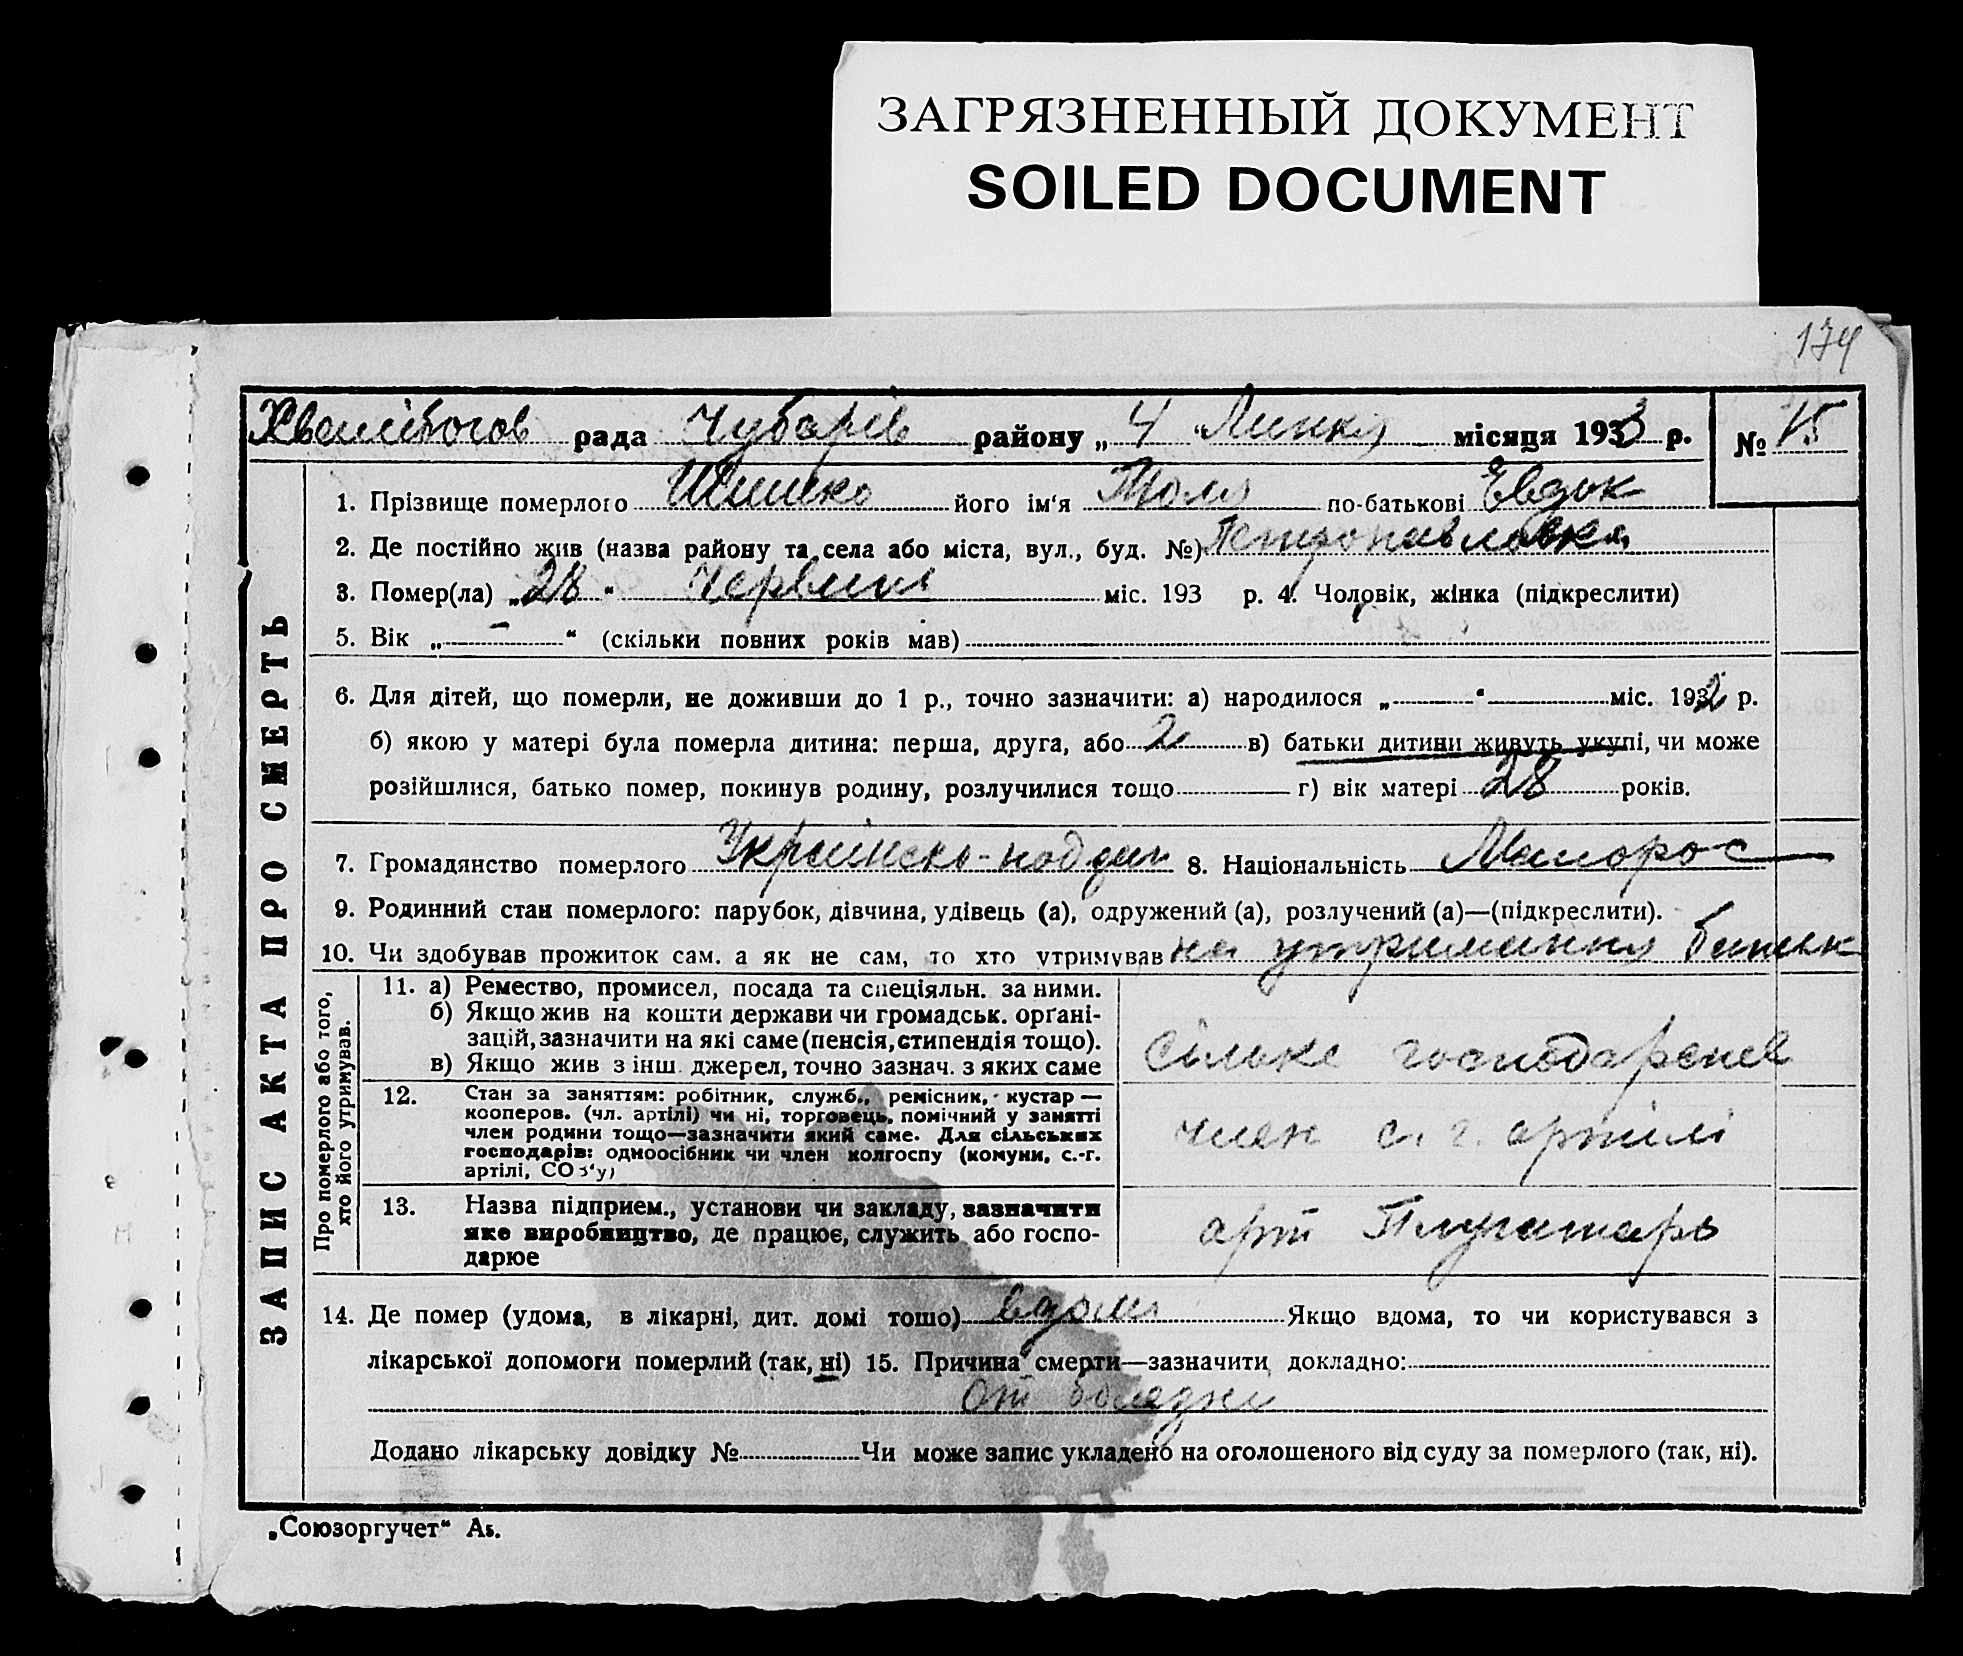 ЗАГРЯЗНЕННЫЙ ДОКУМЕНТ
SOILED DOCUMENT
174
Хвалібогов рада Чубарів району „ 4 “ Липня місяця 1933 р. № 15
ЗАПИС АКТА ПРО СМЕРТЬ
1. Прізвище померлого Шишко його ім‘я Толя по-батькові Евдок
2. Де постійно жив (назва району та села або міста, вул., буд. №) Петропавловка
3. Помер(ла) „ 28 “ Червня міс. 193 р. 4. Чоловік, жінка (підкреслити)
5. Вік „ – “ (скільки повних років мав)
6. Для дітей, що померли, не доживши до 1 р., точно зазначити: а) народилося „ “ міс. 1932 р.
б) якою у матері була померла дитина: перша, друга, або 2 в) батьки дитини живуть укупі, чи може
розійшлися, батько помер, покинув родину, розлучилися тощо г) вік матері 28 років.
7. Громадянство померлого Україиско-поддан 8. Національність Малорос
9. Родинний стан померлого: парубок, дівчина, удівець (а), одружений (а), розлучений (а)—(підкреслити).
10. Чи здобував прожиток сам. а як не сам, то хто утримував на утримання батьк
Про померлого або того, хто його утримував.
11. а) Ремество, промисел, посада та спеціяльн. за ними.
б) Якщо жив на кошти держави чи громадськ. орґані-
зацій, зазначити на які саме (пенсія, стипендія тощо).
в) Якщо жив з інш. джерел, точно зазнач. з яких саме
Сільке господарствe
12. Стан за заняттям: робітник, служб., ремісник, кустар —
кооперов. (чл. артілі) чи ні, торговець, помічний у занятті
член родини тощо—зазначити який саме. Для сільських
господарів: одноосібник чи член колгоспу (комуни, с.-г.
артілі, СОЗ‘у)
член с. г. артілі
13. Назва підприєм., установи чи закладу, зазначити
яке виробництво, де працює, служить або госпо-
дарює
арт Плугатарь
14. Де помер (удома, в лікарні, дит. домі тощо) вдома Якщо вдома, то чи користувався з
лікарської допомоги померлий (так, ні) 15. Причина смерти—зазначити докладно:
От болезни
Додано лікарську довідку № Чи може запис укладено на оголошеного від суду за померлого (так, ні).
„Союзоргучет“ А5.